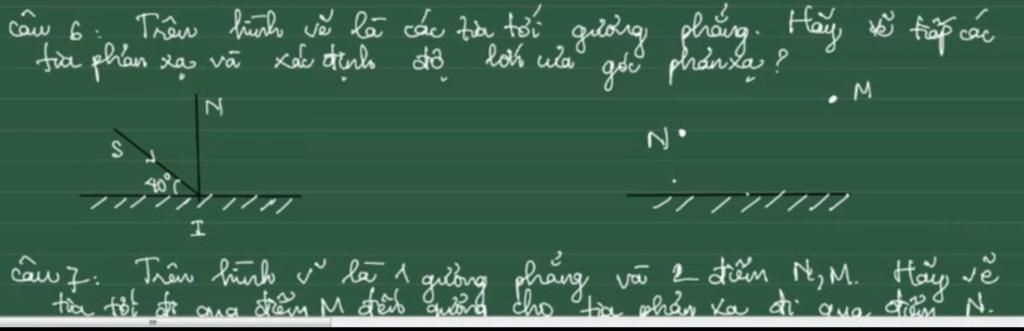 Câu 6: Trên hình vẽ là các tia tới gương phẳng. Hãy vẽ tiếp các
tia phản xạ và xác định độ lớn của góc phản xạ?
N
M
S
N
40°
I
Câu 7: Trên hình vẽ là 1 gương phẳng và 2 điểm N, M. Hãy vẽ
tia tới đi qua điểm M đến gương cho tia phản xạ đi qua điểm N.